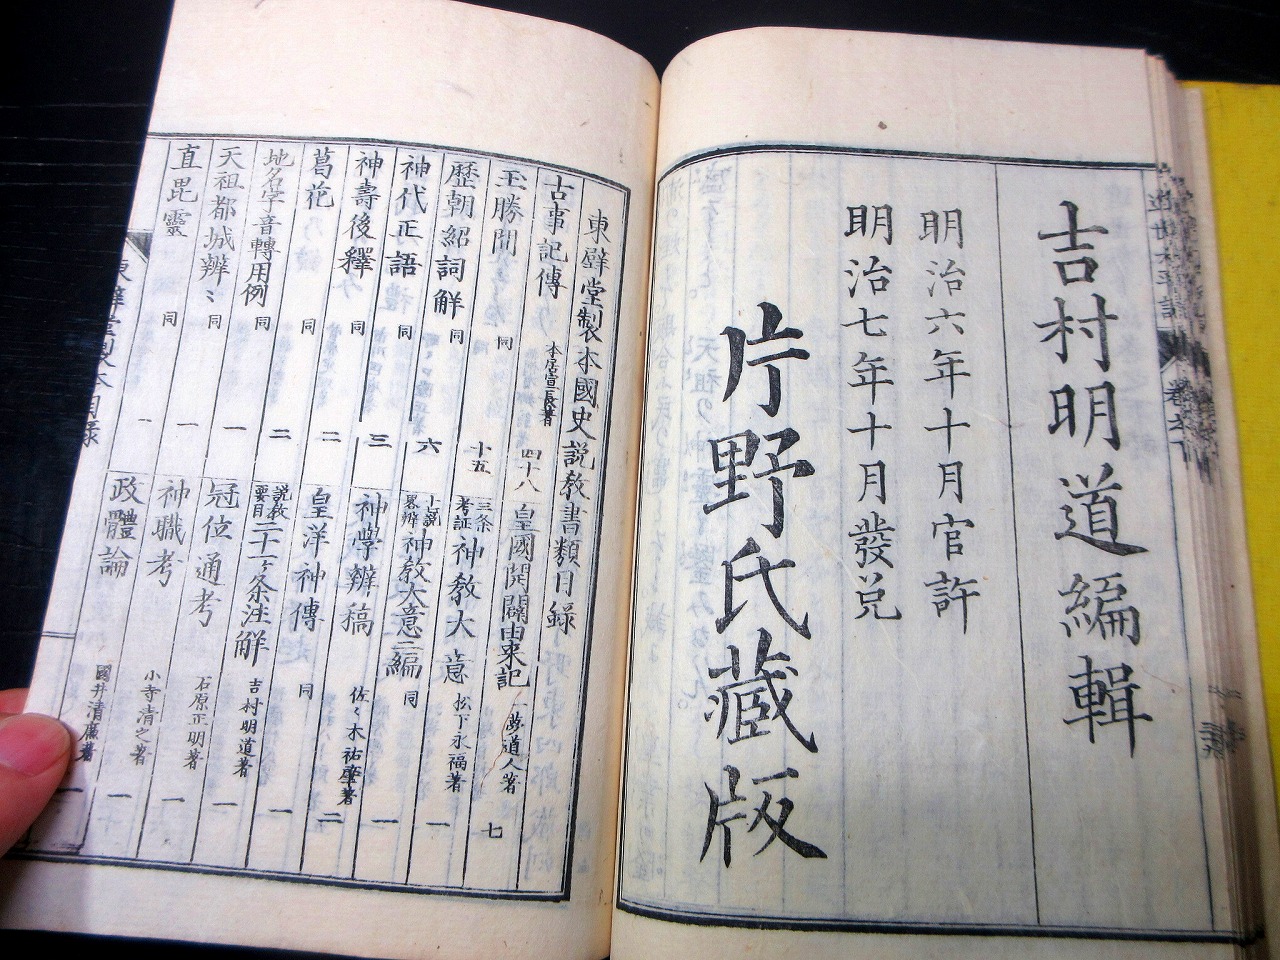 吉村明道編輯
明治六年十月官許
明治七年十月發兌
片野氏藏版
東壁堂製本國史説教書類目録
古事記傳 本居宣長著 四十八
玉勝間 同 十五
歴朝紹詞解 同 六
神代正語 同 三
神壽後釋 同 二
葛花 同 二
地名字音轉用例 同 一
天祖都城辨々 同 一
直毘靈 同 一
皇國開闢由来記 一夢道人著 七
三条考証神教大意 松下永福著 一
神教大意二編 同 一
神學辨稿 佐々木祐肇著 二
皇洋神傳 同 一
説教要目二十二ヶ条注解 吉村明道著 一
冠位通考 石原正明著 一
神職考 小寺清之著 一
政體論 國井清廉著 一